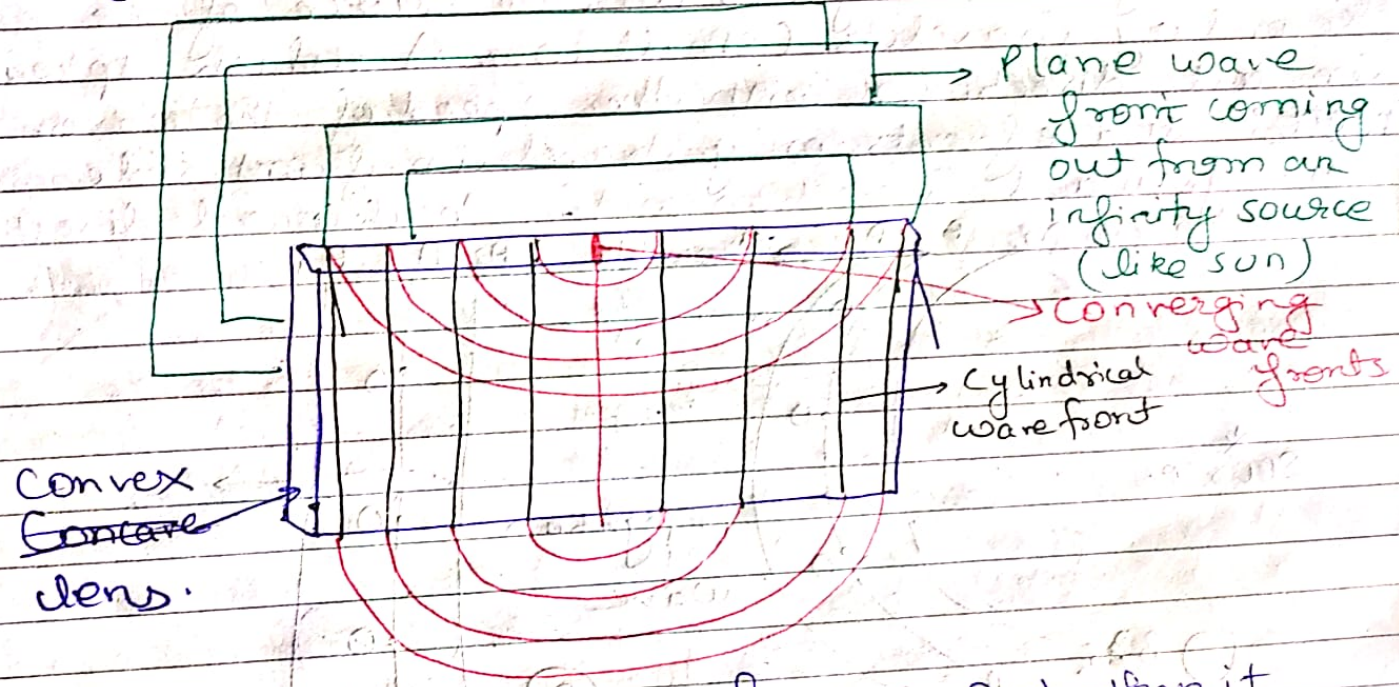 Plane wave
front coming
out from an
infinity source
(like sun)
converging
wave
fronts
Cylindrical
wavefront
Convex
Concave
lens.
it